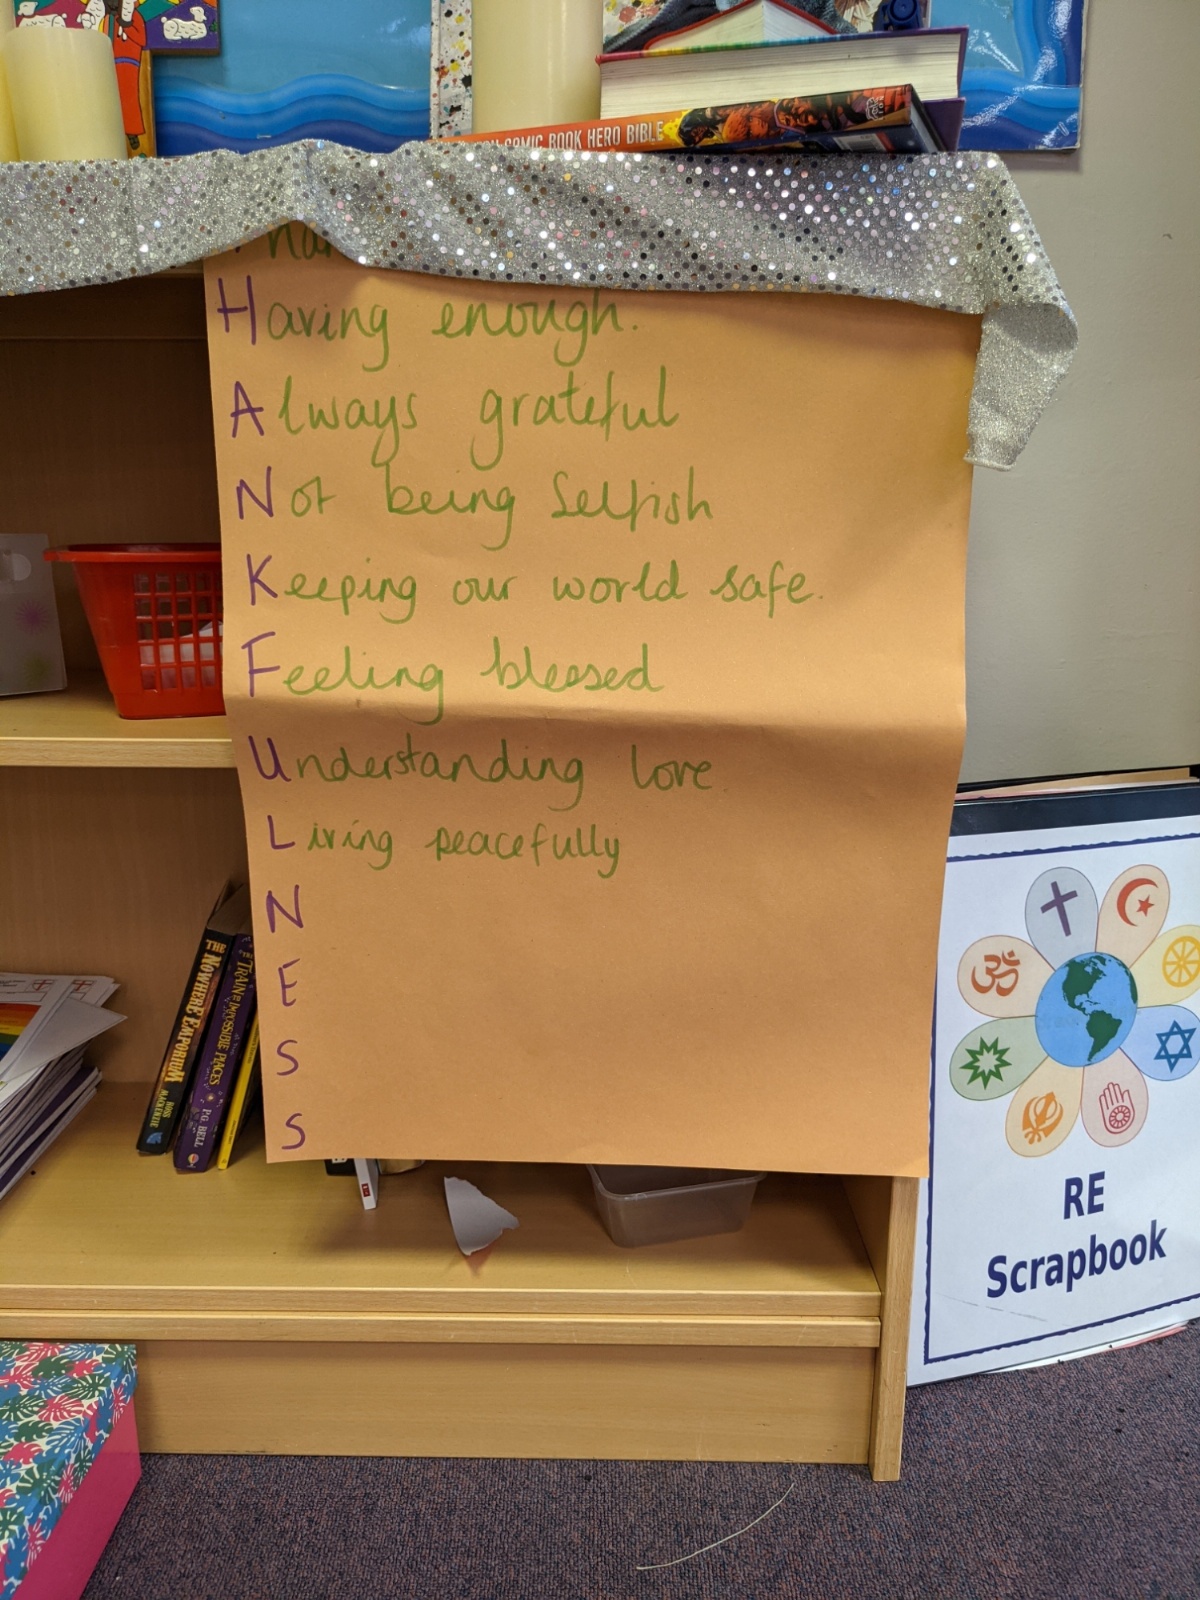 COMIC BOOK HERO BIBLE
Having enough.
Always grateful
Not being selfish
Keeping our world safe.
Feeling blessed
Understanding love
Living peacefully
N
E
S
S
THE NOWHERE EMPORIUM
ROSS MACKENZIE
THE TRAIN TO IMPOSSIBLE PLACES
P.G. BELL
RE
Scrapbook